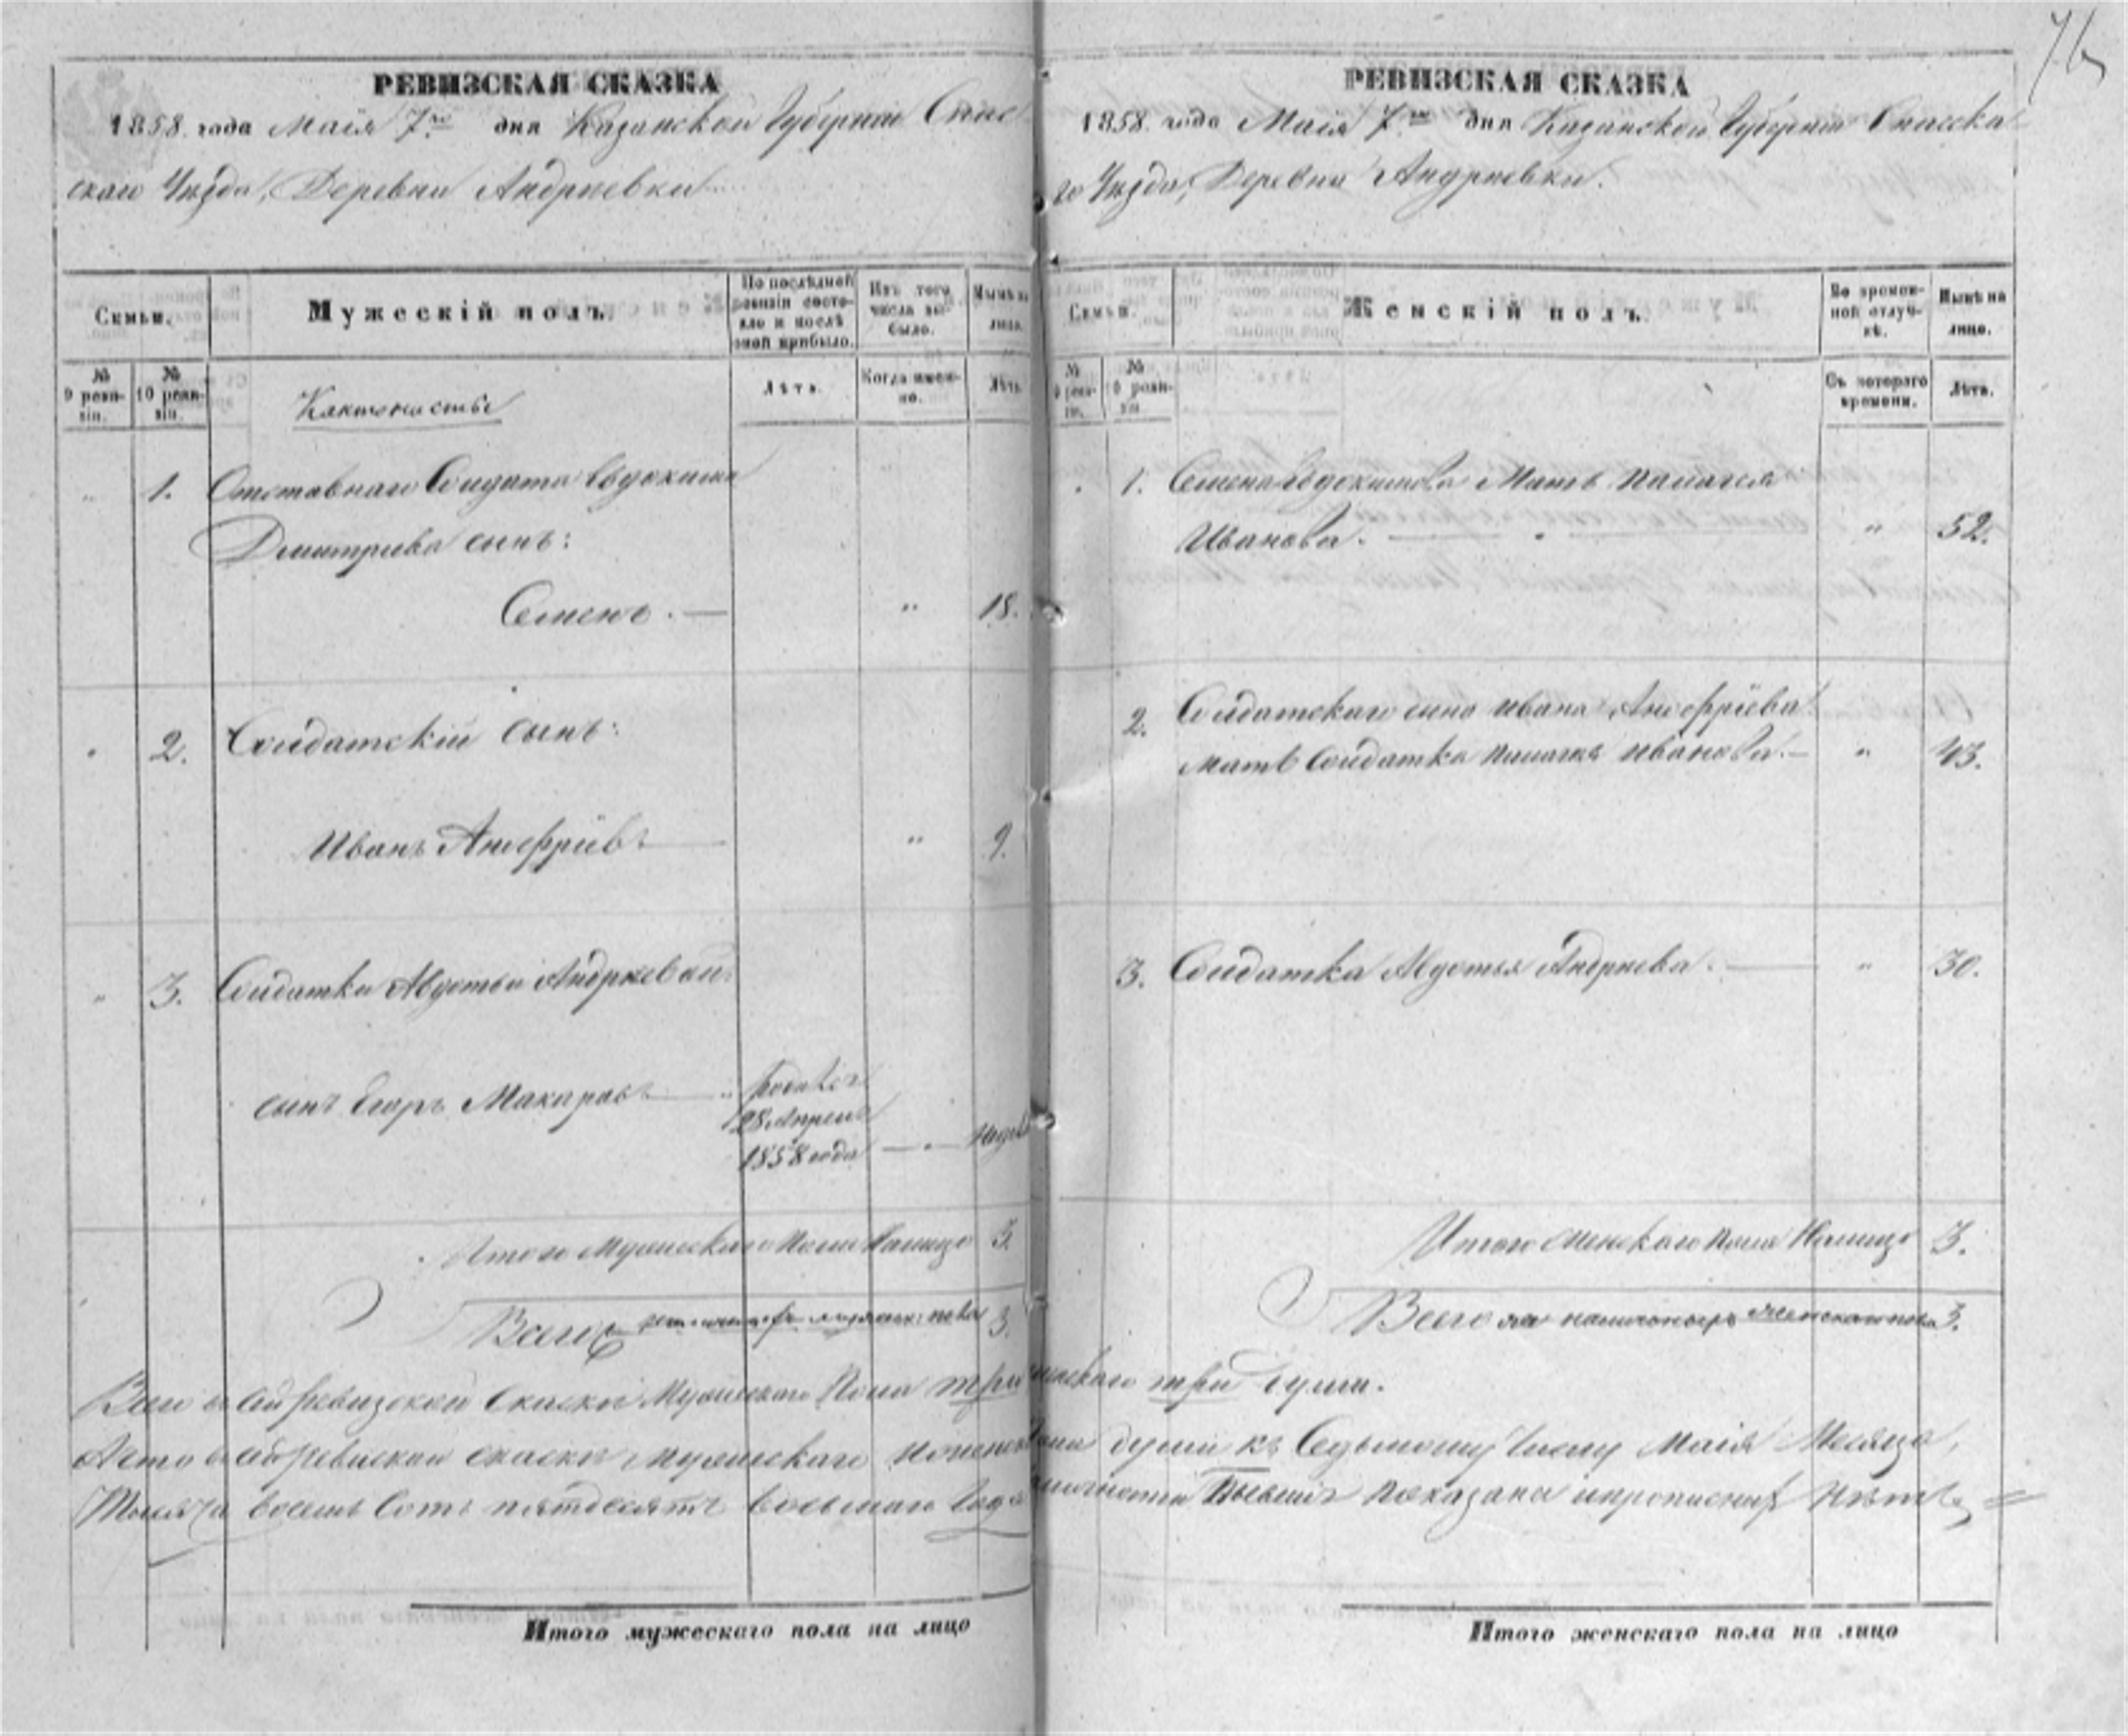 76
РЕВИЗСКАЯ СКАЗКА
1858 года Маія 7го дня Казанской Губерніи Спас
скаго Уѣзда, Деревни Андреевки
Семьи.
Мужескій полъ.
По послѣдней ревизіи состояло и послѣ оной прибыло.
Изъ того числа выбыло.
Нынѣ на лицо.
№ 9 ревизіи.
№ 10 ревизіи.
Лѣта.
Когда именно.
Лѣта.
" 1. Отставнаго Солдата Евдокима
Дмитрива сынъ:
Семенъ. — " 18.
" 2. Солдатскій сынъ:
Иванъ — " 9.
" 3. Солдатки Авдотьи Андреевой
сынъ Егоръ Макаровъ — " родился
28 Апреля
1858 года — " —
Итого Мужескаго Пола Налицо 3.
Всего 3.
Всего въ сей ревизской Скаски Мужескаго Пола три
скаски мужескаго
Тысяча восемь Сотъ пятдесятъ восьмаго Года
Итого мужескаго пола на лицо
РЕВИЗСКАЯ СКАЗКА
1858 года Маія 7го дня Казанской Губерніи Спасска
го Уѣзда, Деревни Андреевки.
Семьи.
Женскій полъ.
Во временной отлучкѣ.
Нынѣ на лицо.
№ 9 ревизіи.
№ 10 ревизіи
Съ котораго времени.
Лѣта.
1. Семена Евдокимова Мать Палагея
Иванова. — " 52.
2. Солдатскаго сына Ивана
мать Солдатка Иванова. — " 43.
3. Солдатка Авдотья Андреева. — " 30.
Итого женскаго пола Налицо 3.
Всего женскаго пола 3.
женскаго три души.
души къ Седьмому Числу Маія Месяца,
показана и прописныхъ Нѣтъ
Итого женскаго пола на лицо